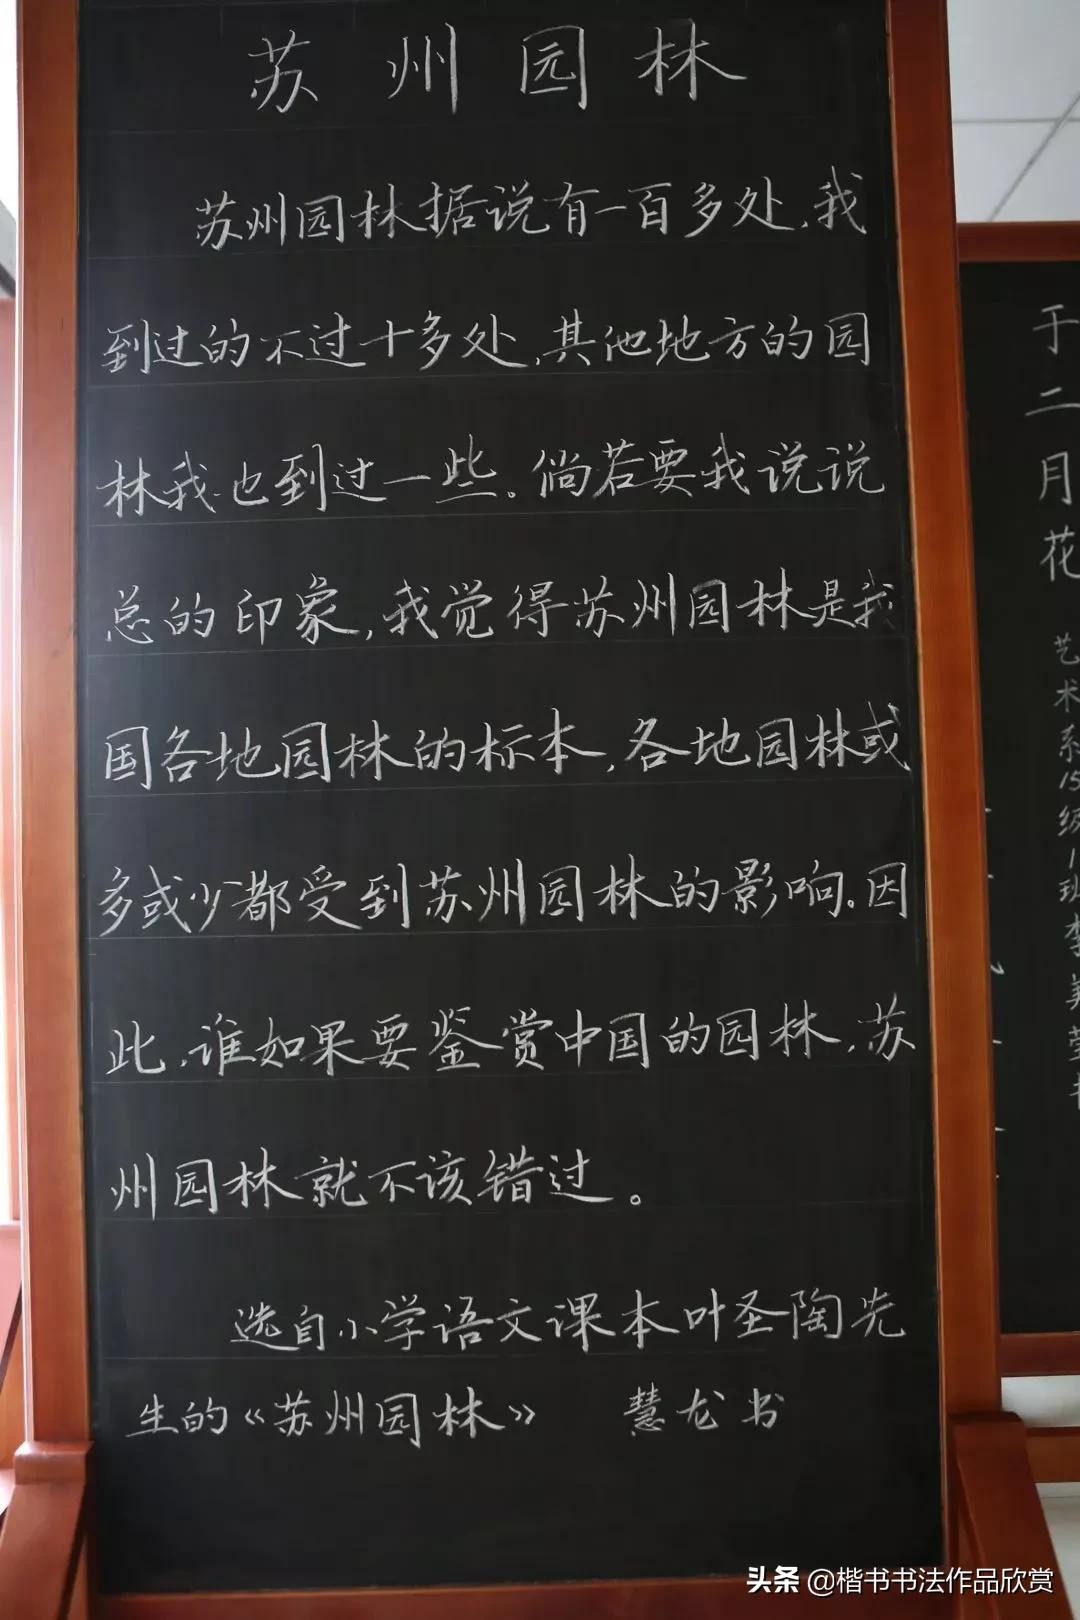 苏州园林
苏州园林据说有一百多处,我
到过的不过十多处,其他地方的园
林我也到过一些。倘若要我说说
总的印象,我觉得苏州园林是我
国各地园林的标本,各地园林或
多或少都受到苏州园林的影响。因
此,谁如果要鉴赏中国的园林,苏
州园林就不该错过。
选自小学语文课本叶圣陶先
生的《苏州园林》 慧龙书
于二月花
艺术系15级1班李美莹书
头条@楷书书法作品欣赏